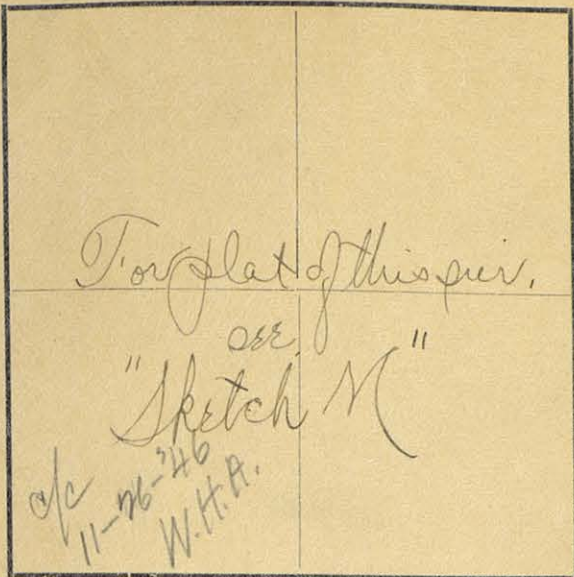 For plat of this pier.
see
"Sketch M"
c/c
11-26-'46
W.H.A.